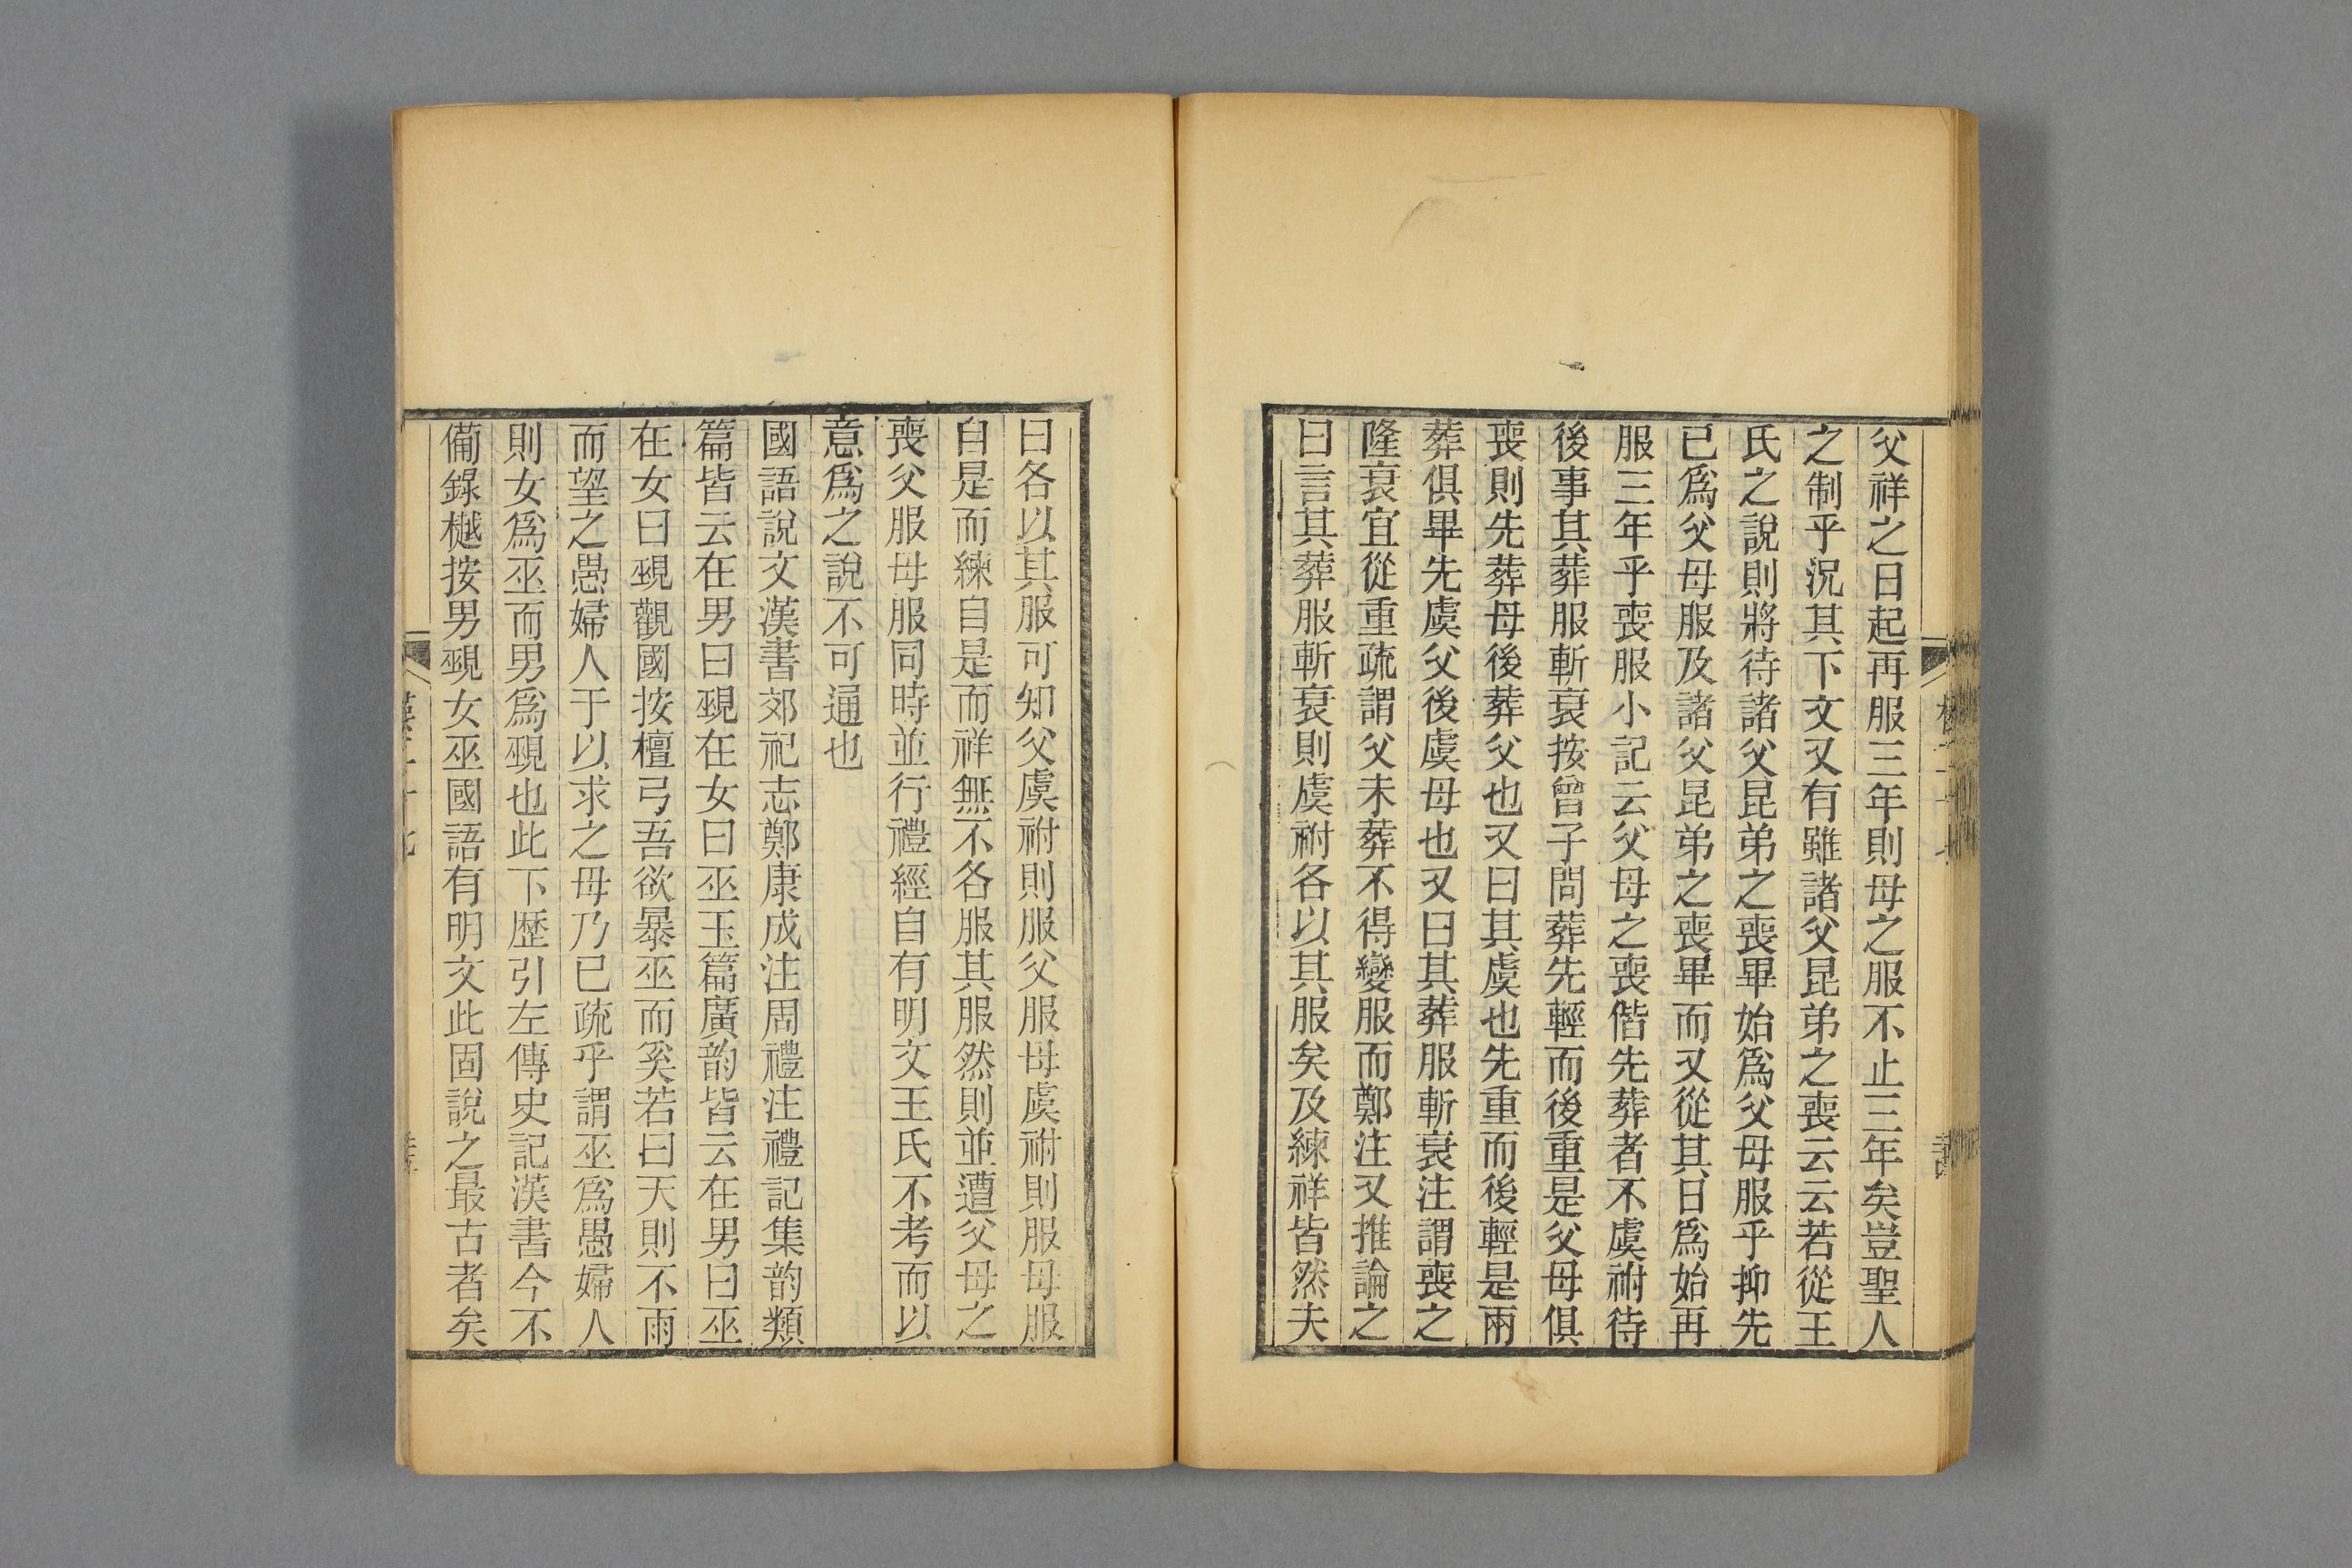 父祥之日起再服三年則母之服不止三年矣豈聖人
之制乎況其下文又有雖諸父昆弟之喪云云若從王
氏之說則將待諸父昆弟之喪畢始爲父母服乎抑先
已爲父母服及諸父昆弟之喪畢而又從其日爲始再
服三年乎喪服小記云父母之喪偕先葬者不虞祔待
後事其葬服斬衰按曾子問葬先輕而後重是父母俱
喪則先葬母後葬父也又曰其虞也先重而後輕是兩
葬俱畢先虞父後虞母也又曰其葬服斬衰注謂喪之
隆衰宜從重疏謂父未葬不得變服而鄭注又推論之
曰言其葬服斬衰則虞祔各以其服矣及練祥皆然夫
曰各以其服可知父虞祔則服父服母虞祔則服母服
自是而練自是而祥無不各服其服然則並遭父母之
喪父服母服同時並行禮經自有明文王氏不考而以
意爲之說不可通也
國語說文漢書郊祀志鄭康成注周禮注禮記集韵類
篇皆云在男曰覡在女曰巫玉篇廣韵皆云在男曰巫
在女曰覡觀國按檀弓吾欲暴巫而奚若曰天則不雨
而望之愚婦人于以求之毋乃已疏乎謂巫爲愚婦人
則女爲巫而男爲覡也此下歷引左傳史記漢書今不
備錄樾按男覡女巫國語有明文此固說之最古者矣